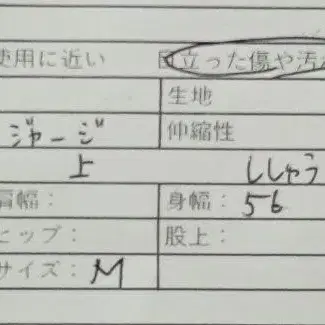 使用に近い 目立った傷や汚
生地
ジャージ 伸縮性
上 ししゅう
肩幅： 身幅：56
ヒップ： 股上：
サイズ：M